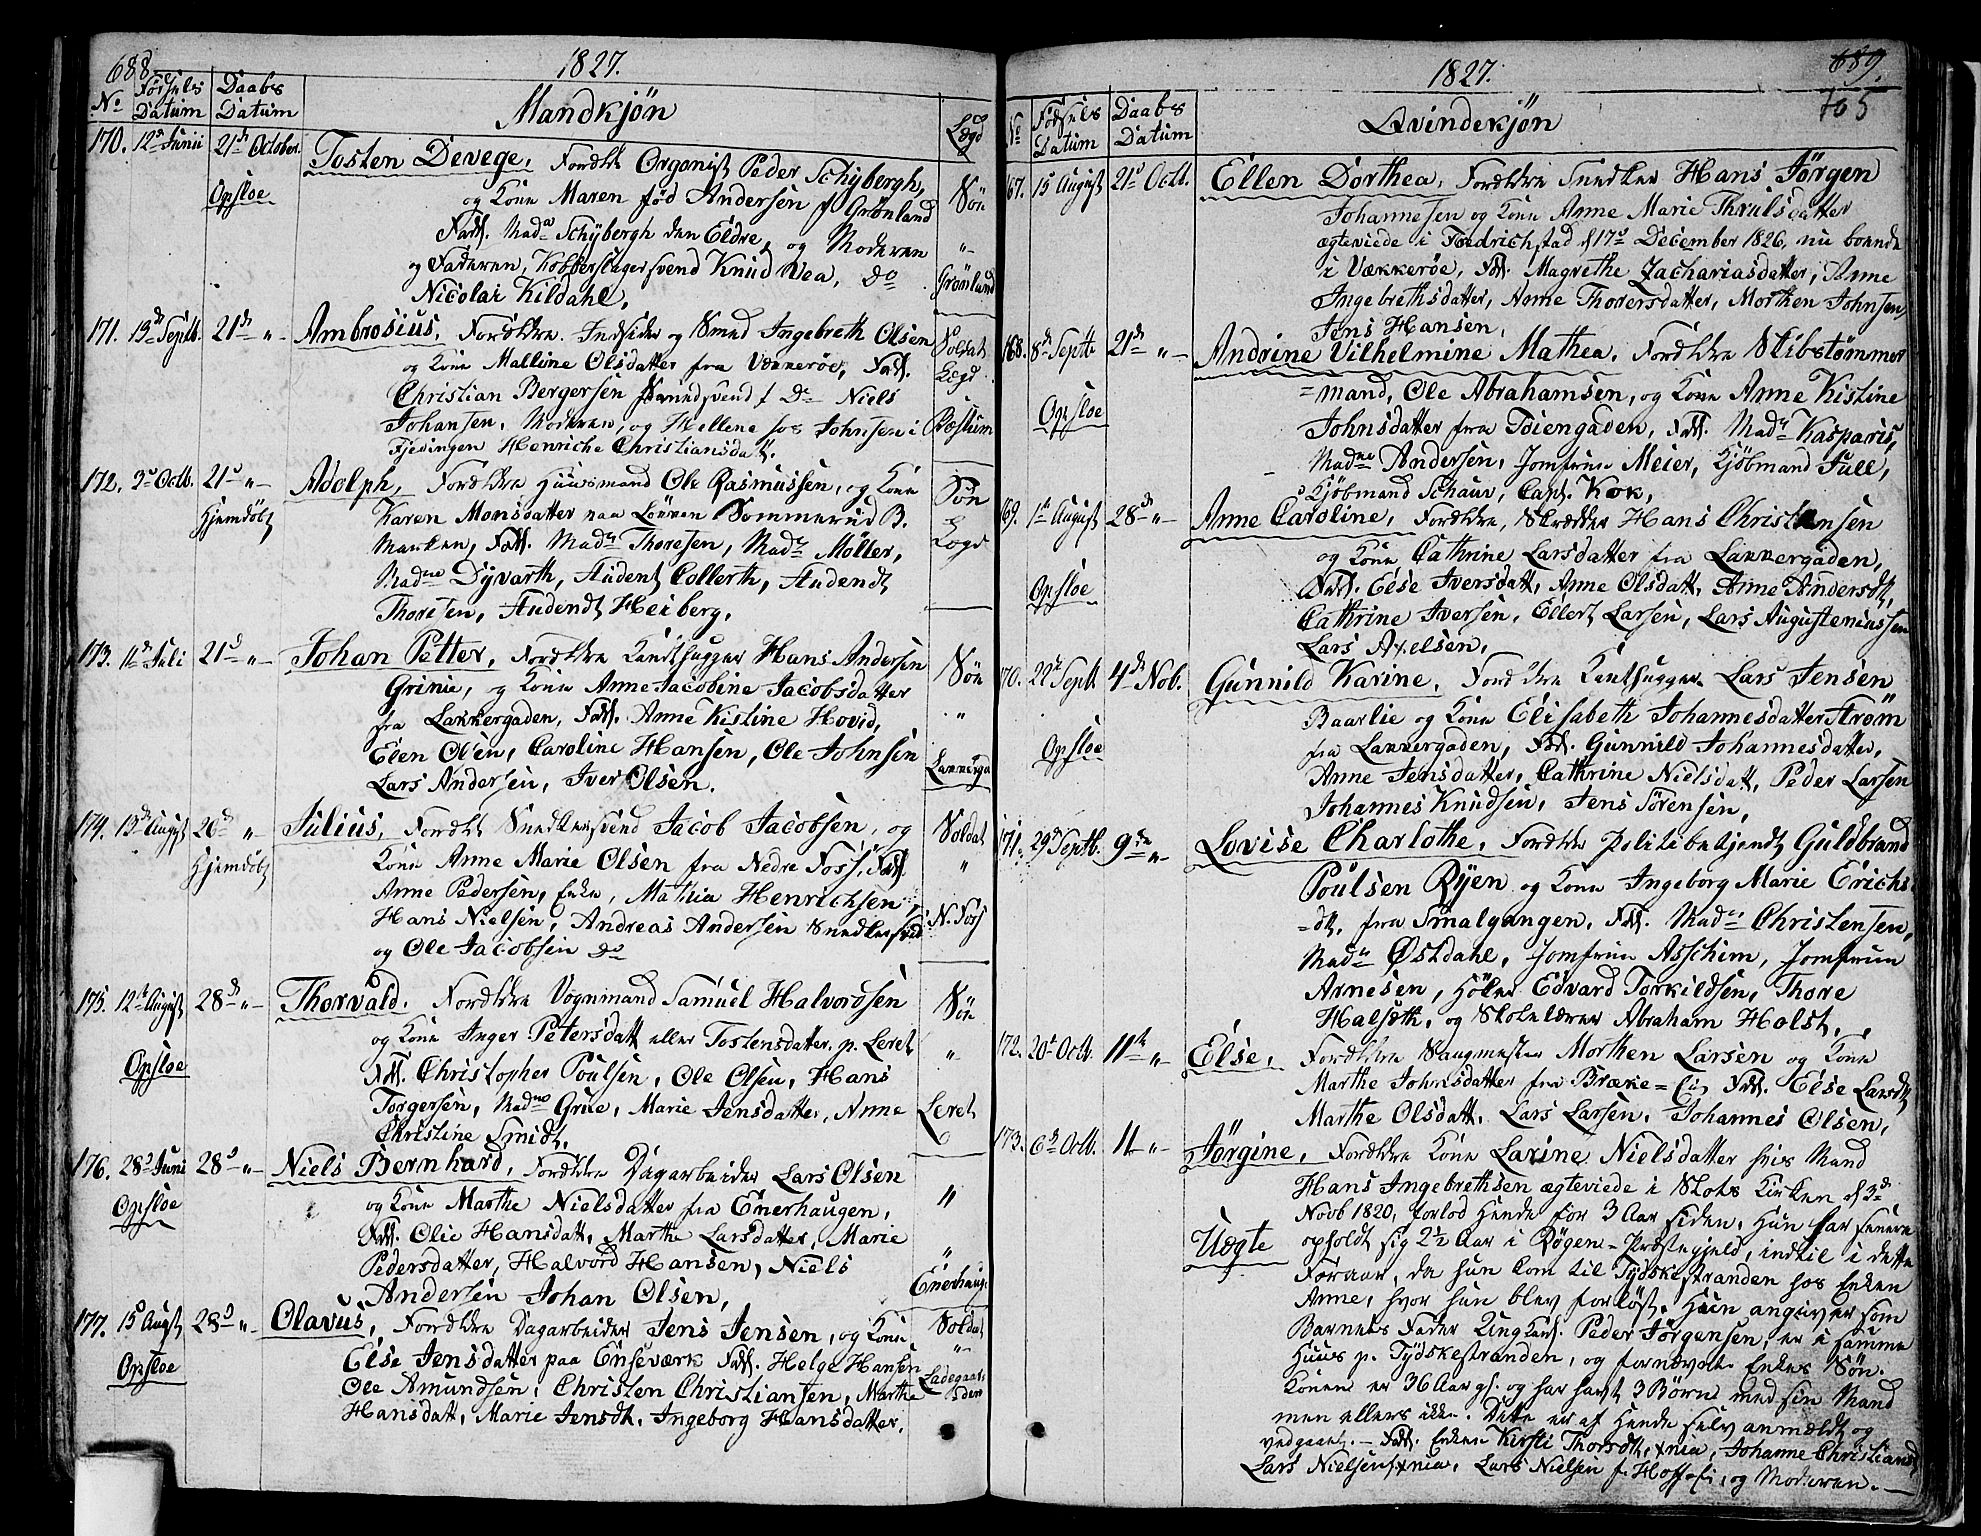 688.
1827.
No
Fødsels Datum
Daabs Datum
Mandkjøn
Lægd
170. 12te Junii 21de October. Opsloe
Tosten Devege, Forældre Organist Peder Schÿbergh,
og Kone Maren fød Andersen f Grønland
Fadd. Mada Schÿbergh den Eldre, og Moderen
og Faderen, Kobberslagersvend Knud Vea, Do
Nicolai Kildahl,
Søn
"
Grønland
171. 13de Septb. 21de "
Ambrosius, Forældre Indsider og Smed Ingebreth Olsen
og Kone Malline Olsdatter fra Vækkerøe, Fadd.
Christian Bergersen Smedsvend f Do Niels
Johansen, Moderen, og Hellene hos Johnsen i
Fjedingen Henriche Christiansdatt.
Soldat
Lægd
Bæslum
172. 3d Octb. 21d " Hjemdøbt
Adolph, Forældre Huusmand Ole Rasmussen, og Kone
Karen Monsdatter paa Løkken Sommerud B.
Marken, Fadd. Made Thoresen, Made Møller,
Madme Dyvarth, Student Collerth, Studendt
Thoresen, Studendt Heiberg,
Søn
Lægd
173. 11d Juli 21d "
Johan Petter, Forældre Kandhugger Hans Andersen
Grinie, og Kone Anne Jacobine Jacobsdatter
fra Lakkergaden, Fadd. Anne Kistine Hovid,
Elen Olsen, Caroline Hansen, Ole Johnsen
Lars Andersen, Iver Olsen.
Søn
"
Lakkerga
174. 13de August 26d " Hjemdøbt
Julius, Forældr Snedkersvend Jacob Jacobsen, og
Kone Anne Marie Olsen fra Nedre Foss, Fadd.
Anne Pedersen, Enke, Mathia Henrichsen,
Hans Nielsen, Andreas Andersen Snedkersvd
og Ole Jacobsen do
Soldat
"
N. Foss
175. 12te August 28de " Opsloe
Thorvald. Forældre Vognmand Samuel Halvorsen
og Kone Inger Petersdatt eller Tostensdatter. p. Leret
Fadd. Christopher Poulsen, Ole Olsen, Hans
Torgersen, Madme Grue, Marie Jensdatter, Anne
Christine Smidt.
Søn
"
Leret
176. 28d Juni 28d " Opsloe
Niels Bernhard, Forældre Dagarbeider Lars Olsen
og Kone Marthe Nielsdatter fra Enerhaugen,
Fadd. Olie Hansdatt, Marthe Larsdatter, Marie
Pedersdatter, Halvord Hansen, Niels
Andersen Johan Olsen,
"
"
Enerhaug.
177. 15d Augst 28d " Opsloe
Olavus, Forældre Dagarbeider Jens Jensen, og Kone
Else Jensdatter paa Enseværk Fadd. Helge Hansen
Ole Amundsen, Christen Christiansen, Marthe
Hansdatt, Marie Jensdt, Ingeborg Hansdatter.
Soldat
"
Ladegaards-
øen
1827.
689.
705
No
Fødsels Datum
Daabs Datum
Qvindekjøn
67. 15 August 21d Octt.
Ellen Dorthea, Forældre Snedker Hans Jørgen
Johannesen og Kone Anne Marie Thrulsdatter
ægteviede i Fredrichstad d 17d December 1826, nu boende
i Vækkerøe, Fadd. Magrethe Zachariasdatter, Anne
Ingebrethsdatter, Anne Thorersdatter, Morthen Johnsen,
Jens Hansen,
168. 8de Septb 21de " Opsloe
Andrine Vilhelmine Mathea. Forældre Skibstømmer
=mand, Ole Abrahamsen, og Kone Anne Kistine
Johnsdatter fra Tøiengaden, Fadd. Made Kasparis,
Madme Andersen, Jomfrue Meier, Kjøbmand Tull,
Kjøbmand Schauv, Capt. Kok,
69. 1te August 28de " Opsloe
Anne Caroline, Forældre, Skrædder Hans Christensen
og Kone Cathrine Larsdatter fra Lakkergaden,
Fadd. Else Iversdatt, Anne Olsdatt, Anne Andersdt,
Cathrine Iversen, Ellert Larsen, Lars Augusteniussen
Lars Axelsen,
70. 22de Septb 4de Nob. Opsloe
Gunnild Karine, Forældre Kandhugger Lars Jensen
Baarlie og Kone Elisabeth Johannesdatter Strøm
fra Lakkergaden, Fadd. Gunnild Johannesdatter,
Anne Jensdatter, Cathrine Nielsdatt, Peder Larsen
Johannes Knudsen, Jens Sørensen,
171. 29d Septb. 9de "
Lovise Charlothe, Forældre Politibetjendt Guldbrand
Poulsen Ryen og Kone Ingeborg Marie Erichs
=dt, fra Smalgangen, Fadd. Made Christensen,
Made Østdahl, Jomfrue Asschim, Jomfrue
Arnesen, Høker Edvard Torkildsen, Thore
Halseth, og Skolelærer Abraham Holst.
172. 20d Octb. 11te "
Else, Forældre Saugmester Morthen Larsen og Kone
Marthe Johnsdatter fra Brække= Fadd. Else Larsdt
Marthe Olsdatt, Lars Larsen, Johannes Olsen,
173. 6d Octb. 11 " Uægte
Jørgine, Forældre Kone Larine Nielsdatter hvis Mand
Hans Ingebrethsen ægteviede i Slots Kirken d 3de
Novb 1820, forlod hende for 3 Aar siden. Hun har senere
opholdt sig 2½ Aar i Røgen=Prestegjeld, indtil i dette
Foraar, da hun kom til Tydskestranden hos Enken
Anne, hvor hun blev forløst, Hun angiver som
Barnets Fader Ungkarl Peder Jørgensen, er i samme
Huus p. Tydskestranden, og fornævnte Enkes Søn.
Konen er 36 Aar gl. og har havt 3 Børn med sin Mand
men ellers ikke. Dette er af hende selv anmældt og
vedgaaet. — Fadd. Enken Kirsti Thorsdt, Johanne Christiansd
Lars Nielsen Lars Nielsen f. og Moderen.